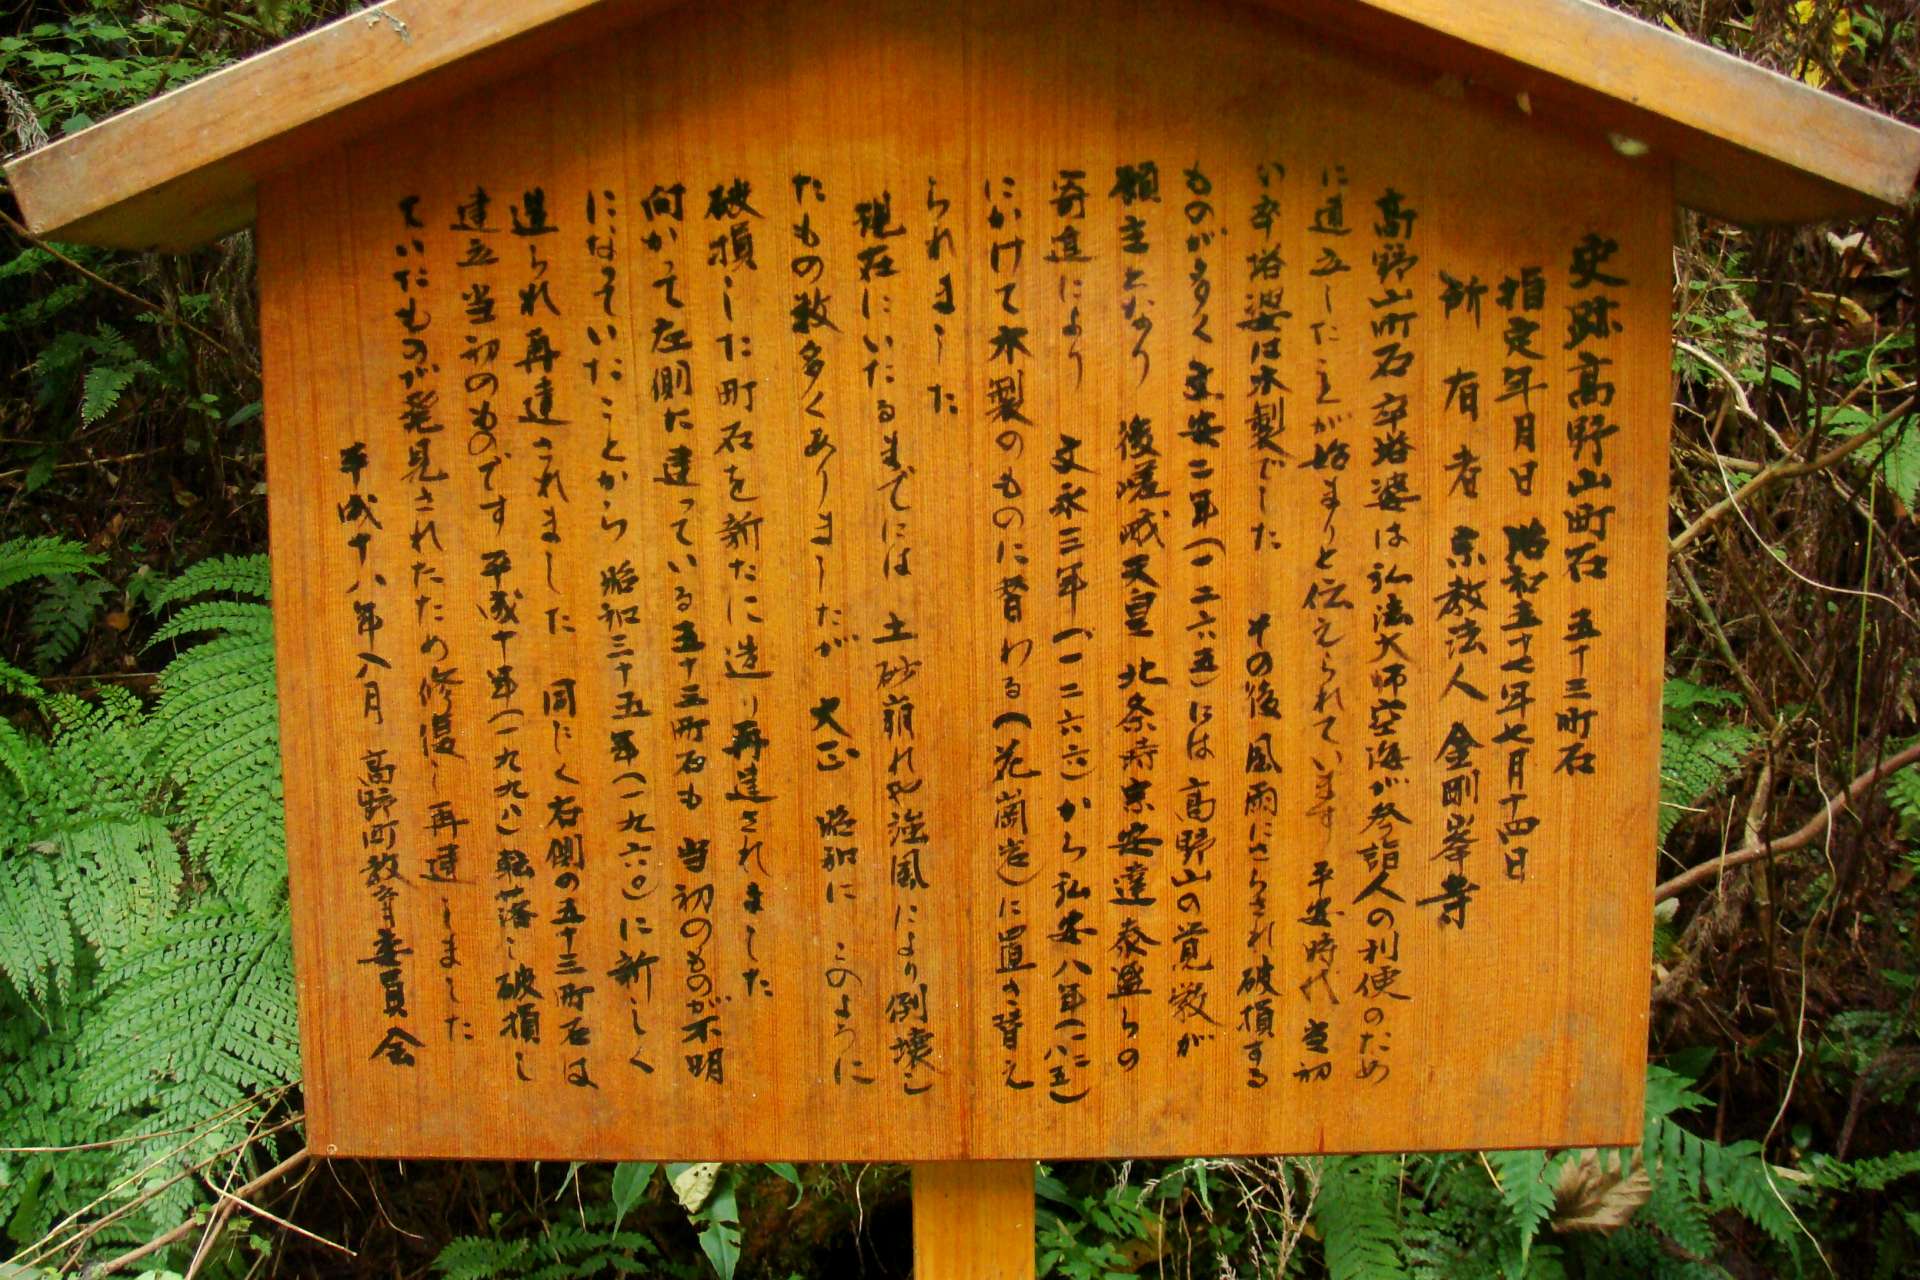 史跡高野山町石 五十三町石
指定年月日 昭和五十七年七月十四日
所有者 宗教法人 金剛峯寺
高野山町石卒塔婆は弘法大師空海が参詣人の利便のため
に造立したことが始まりと伝えられています 平安時代 当初
い卒塔婆は木製でした その後風雨にさらされ破損する
ものが多く文安二年(一二六五)には高野山の覚斅が
願主となり 後嵯峨天皇 北条時宗安達泰盛らの
寄進により 文永三年(一二六六)から弘安八年(一二八五)
にかけて木製のものに替わる(花崗岩)に置き替え
られました
現在にいたるまでには 土砂崩れや強風により倒壊し
たもの数多くありましたが 大正 昭和に このように
破損した町石を新たに造り再建されました
向かって左側に建っている五十三町石も 当初のものが不明
になっていたことから 昭和三十五年(一九六〇)に新しく
造られ再建されました 同じく右側の五十三町石は
建立当初のものです 平成十年(一九九八)転落し破損し
ていたものが発見されたため修復し再建しました
平成十八年八月 高野町教育委員会